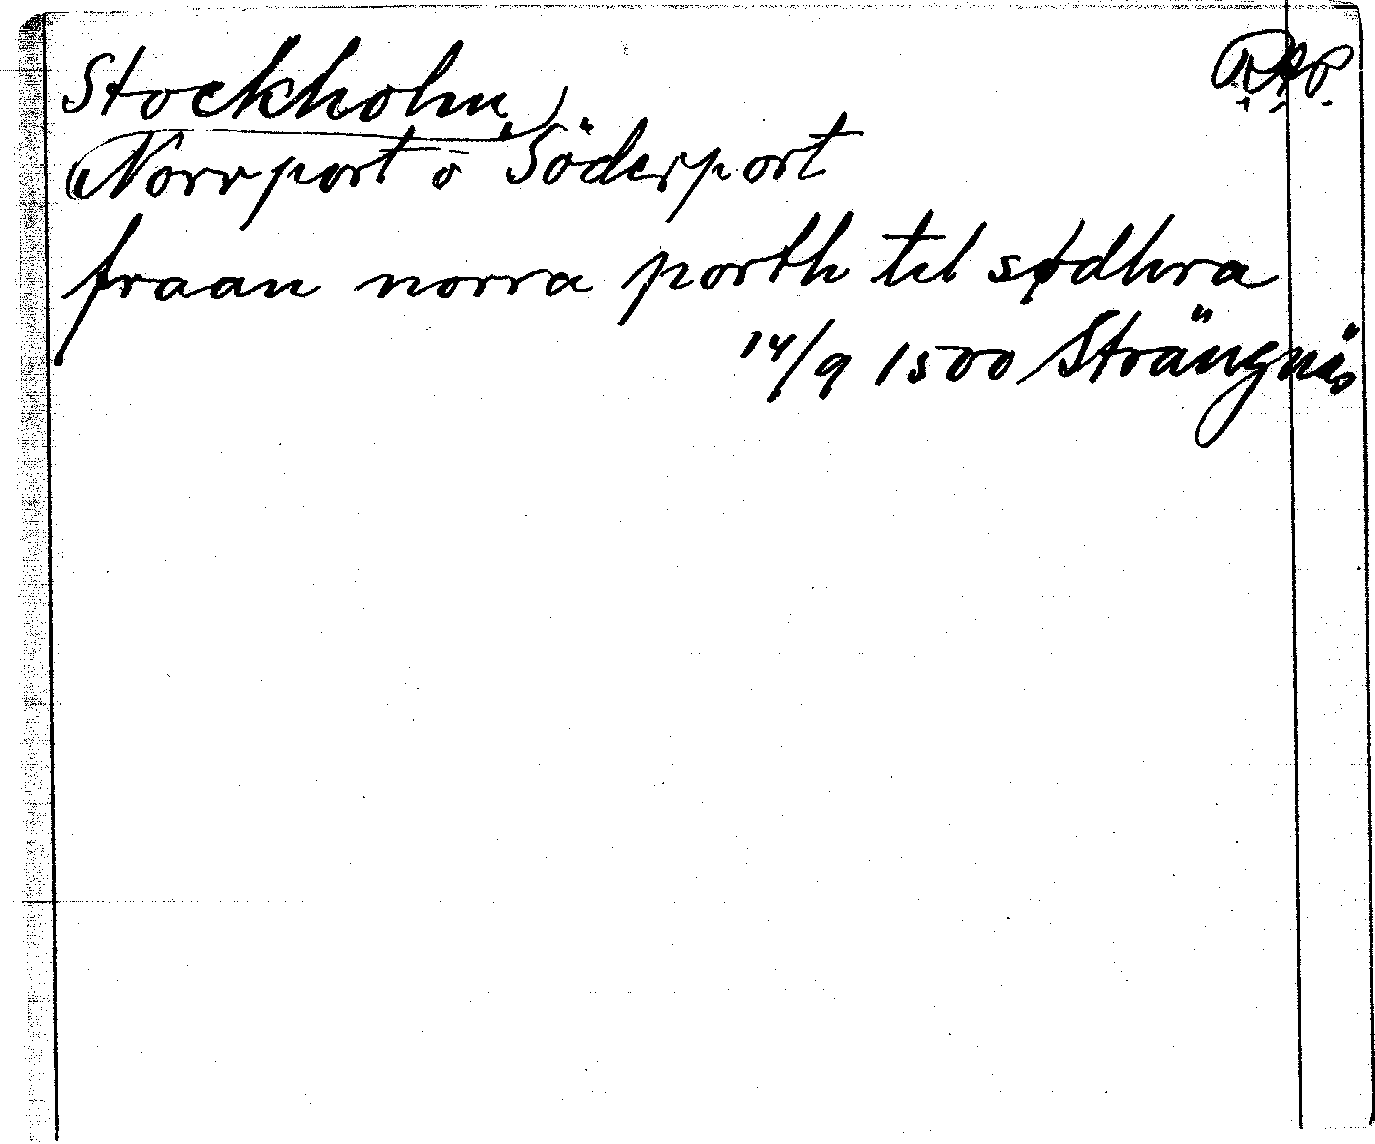 Stockholm, RAP.
Norrport o Söderport
fraan norra porth til sødhra
14/9 1500 Strängnäs